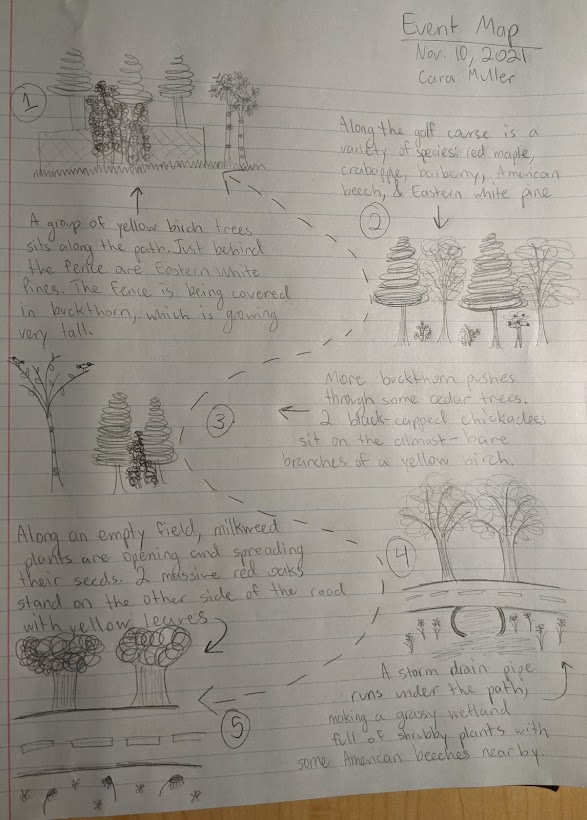 Event Map
Nov. 10, 2021
Cara Muller
1
A group of yellow birch trees
sits along the path. Just behind
the fence are Eastern White
Pines. The fence is being covered
in buckthorn, which is growing
very tall.
Along the golf carse is a
variety of species: red maple,
crabapple, barberry, American
beech, & Eastern white pine
2
More buckthorn pushes
through some cedar trees.
2 black-capped chickadees
sit on the almost-bare
branches of a yellow birch.
3
4
A storm drain pipe
runs under the path,
making a grassy wetland
full of shrubby plants with
some American beeches nearby.
Along an empty field, milkweed
plants are opening and spreading
their seeds. 2 massive red oaks
stand on the other side of the road
with yellow leaves
5